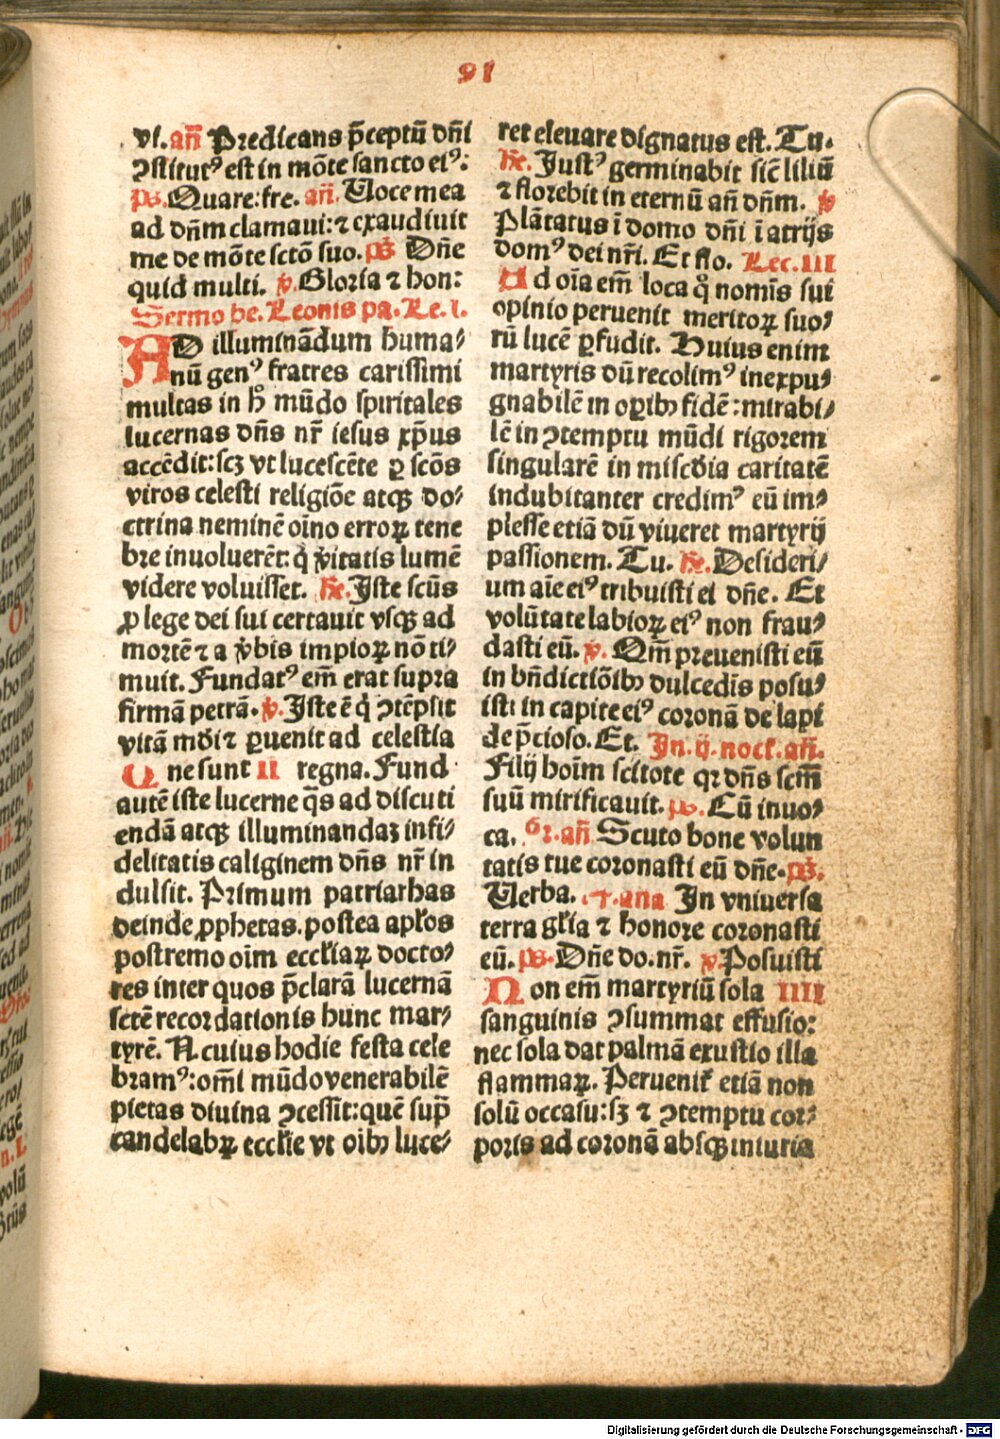 91
vl. an̄ Predicans p̄ceptū dn̄i
ꝯstitutꝰ est in mōte sancto eiꝰ:
ps. Quare: fre. an̄. Uoce mea
ad dn̄m clamaui: ⁊ exaudiuit
me de mōte sctō suo. ps̄ Dn̄e
quid multi. ꝟ. Gloria ⁊ hon:
Sermo be. Leonis pa. Le. I.
AD illuminādum huma⸗
nū genꝰ fratres carissimi
multas in h° mūdo spiritales
lucernas dn̄s nr̄ iesus xp̄us
accēdit: scꝫ vt lucescēte ꝑ scōs
viros celesti religiōe atqꝫ do⸗
ctrina neminē oīno erroꝝ tene
bre inuoluerēt: q̇ ꝟitatis lumē
videre voluisset. R̄e. Iste scūs
ꝓ lege dei sui certauit vsqꝫ ad
mortē ⁊ a ꝟbis impioꝝ nō ti⸗
muit. Fundatꝰ em̄ erat supra
firmā petrā. ꝟ. Iste ē q̇ ꝯtēpsit
vitā mūdi ⁊ ꝑuenit ad celestia
Unesunt II regna. Fund
autē iste lucerne q̄s ad discuti
endā atqꝫ illuminandaꝫ infi⸗
delitatis caliginem dn̄s nr̄ in
dulsit. Primum patriarhas
deinde ꝓphetas. postea apl̄os
postremo oīm eccl̄iaꝝ docto⸗
res inter quos p̄clarā lucernā
sctē recordationis hunc mar⸗
tyrē. A cuius hodie festa cele
bramꝰ: om̄i mūdo venerabilē
pietas diuina ꝯcessit: quē sup̄
candelabꝝ eccl̄ie vt oibꝫ luce⸗
ret eleuare dignatus est. Tu.
R̄e. Iustꝰ germinabit sic̄ liliū
⁊ florebit in eternū an̄ dn̄m. ꝟ
Plātatus ī domo dn̄i ī atrijs
domꝰ dei nr̄i. Et flo. Lec. III
Ad oīa em̄ loca q̊ nomīs sui
opinio peruenit meritoꝝ suo⸗
rū lucē ꝑfudit. Huius enim
martyris dū recolimꝰ inexpu⸗
gnabilē in oꝑibꝫ fidē: mirabi⸗
lē in ꝯtemptu mūdi rigorem
singularē in miscd̄ia caritatē
indubitanter credimꝰ eū im⸗
plesse etiā dū viueret martyrij
passionem. Tu. R̄e. Desideri⸗
um aīe eiꝰ tribuisti ei dn̄e. Et
volūtate labioꝝ eiꝰ non frau⸗
dasti eū. ꝟ. Qm̄ preuenisti eū
in bn̄dictiōibꝫ dulcedīs posu⸗
isti in capite eiꝰ coronā de lapi
de p̄cioso. Et. In .ij. noct̄. an̄.
Filij hoīm scitote qꝛ dn̄s scm̄
suū mirificauit. ps. Cū inuo⸗
ca. 6ꝛ. an̄ Scuto bone volun
tatis tue coronasti eū dn̄e. ps̄.
Uerba. . ana In vniuersa
terra gl̄ia ⁊ honore coronasti
eū. ps. Dn̄e do. nr̄. ꝟ Posuisti
Non em̄ martyriū sola IIII
sanguinis ꝯsummat effusio:
nec sola dat palmā exustio illa
flammaꝝ. Peruenit̄ etiā non
solū occasu: sꝫ ⁊ ꝯtemptu cor⸗
poris ad coronā absqꝫ iniuria
Digitalisierung gefördert durch die Deutsche Forschungsgemeinschaft - DFG